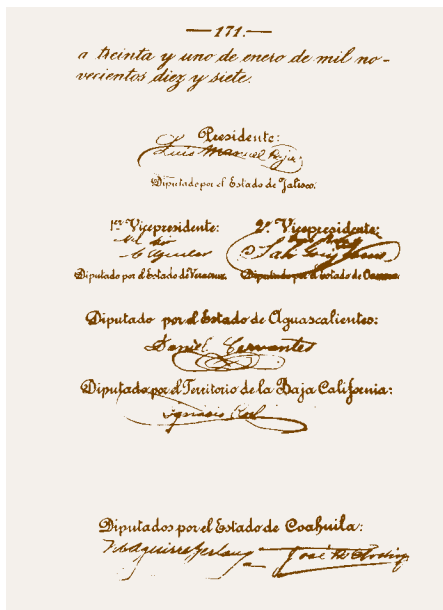 — 171. —
a treinta y uno de enero de mil no-
vecientos diez y siete.
Presidente:
Luis Manuel Rojas
Diputado por el Estado de Jalisco.
1er Vicepresidente:
C Aguilar
Diputado por el Estado de Veracruz.
2º. Vicepresidente:
Diputado por el estado de Oaxaca
Diputado por el Estado de Aguascalientes:
Daniel Cervantes
Diputado por el Territorio de la Baja California:
Ignacio Roel
Diputados por el Estado de Coahuila:
M Aguirre Berlanga José R